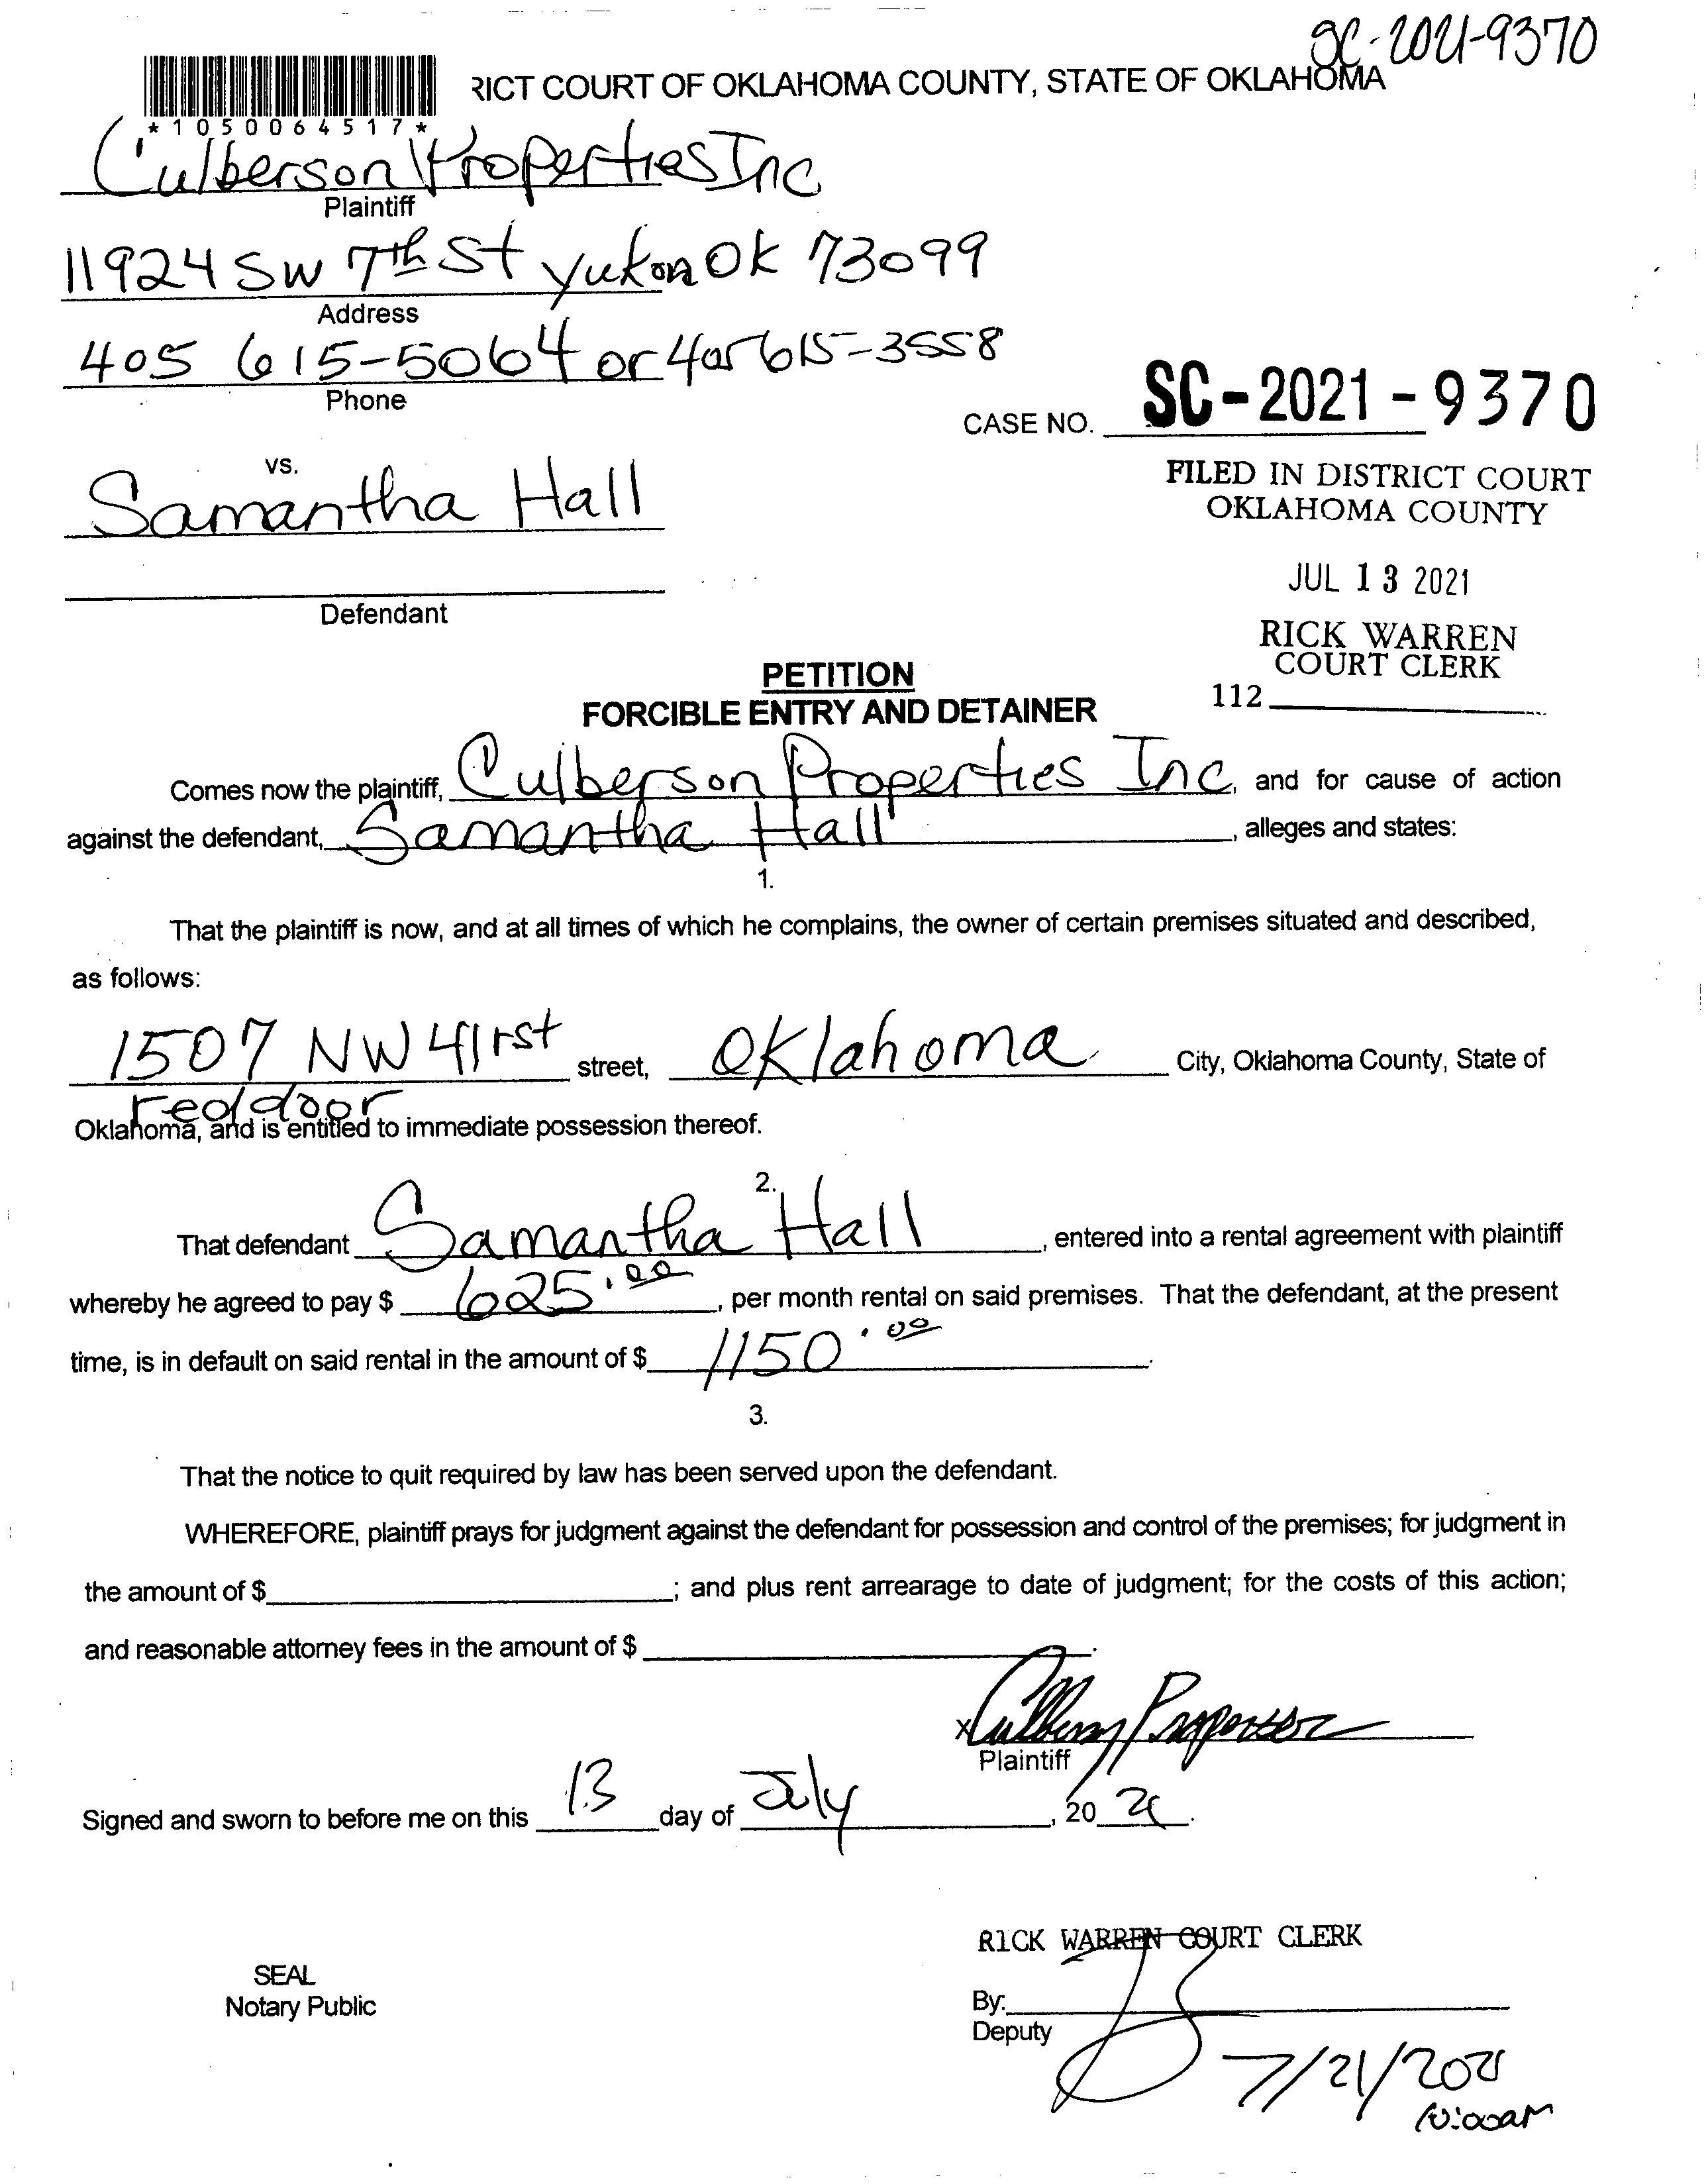 SC-2021-9370
RICT COURT OF OKLAHOMA COUNTY, STATE OF OKLAHOMA
*1050064517*
Culberson Properties Inc
Plaintiff
11924 SW 7th St Yukon OK 73099
Address
405 615-5064 or 405 615-3558
Phone
CASE NO. SC-2021-9370
vs.
Samantha Hall
FILED IN DISTRICT COURT
OKLAHOMA COUNTY
JUL 13 2021
Defendant
RICK WARREN
COURT CLERK
112
PETITION
FORCIBLE ENTRY AND DETAINER
Comes now the plaintiff, Culberson Properties Inc, and for cause of action
against the defendant, Samantha Hall, alleges and states:
1.
That the plaintiff is now, and at all times of which he complains, the owner of certain premises situated and described,
as follows:
1507 NW 41rst street, Oklahoma City, Oklahoma County, State of
red door
Oklahoma, and is entitled to immediate possession thereof.
2.
That defendant Samantha Hall, entered into a rental agreement with plaintiff
whereby he agreed to pay $ 625.00, per month rental on said premises. That the defendant, at the present
time, is in default on said rental in the amount of $ 1150.00.
3.
That the notice to quit required by law has been served upon the defendant.
WHEREFORE, plaintiff prays for judgment against the defendant for possession and control of the premises; for judgment in
the amount of $ ; and plus rent arrearage to date of judgment; for the costs of this action;
and reasonable attorney fees in the amount of $ .
X
Plaintiff
Signed and sworn to before me on this 13 day of July, 20 21.
RICK WARREN COURT CLERK
SEAL
Notary Public
By:
Deputy
7/21/2021
10:00am